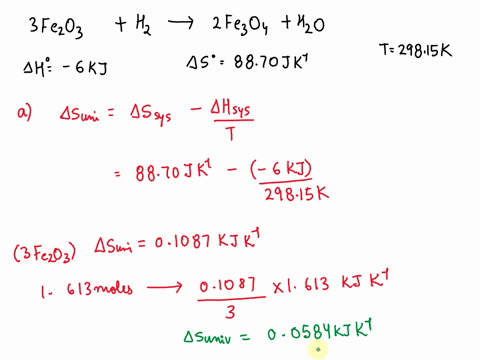 3Fe₂O₃ + H₂ → 2Fe₃O₄ + H₂O
ΔH° = -6 KJ ΔS° = 88.70 JK⁻¹ T = 298.15K
a) ΔSuni = ΔSsys - ΔHsys/T
= 88.70 JK⁻¹ - (-6 KJ)/298.15K
(3Fe₂O₃) ΔSuni = 0.1087 KJK⁻¹
1.613 moles → 0.1087/3 × 1.613 KJK⁻¹
ΔSuniv = 0.0584 KJK⁻¹